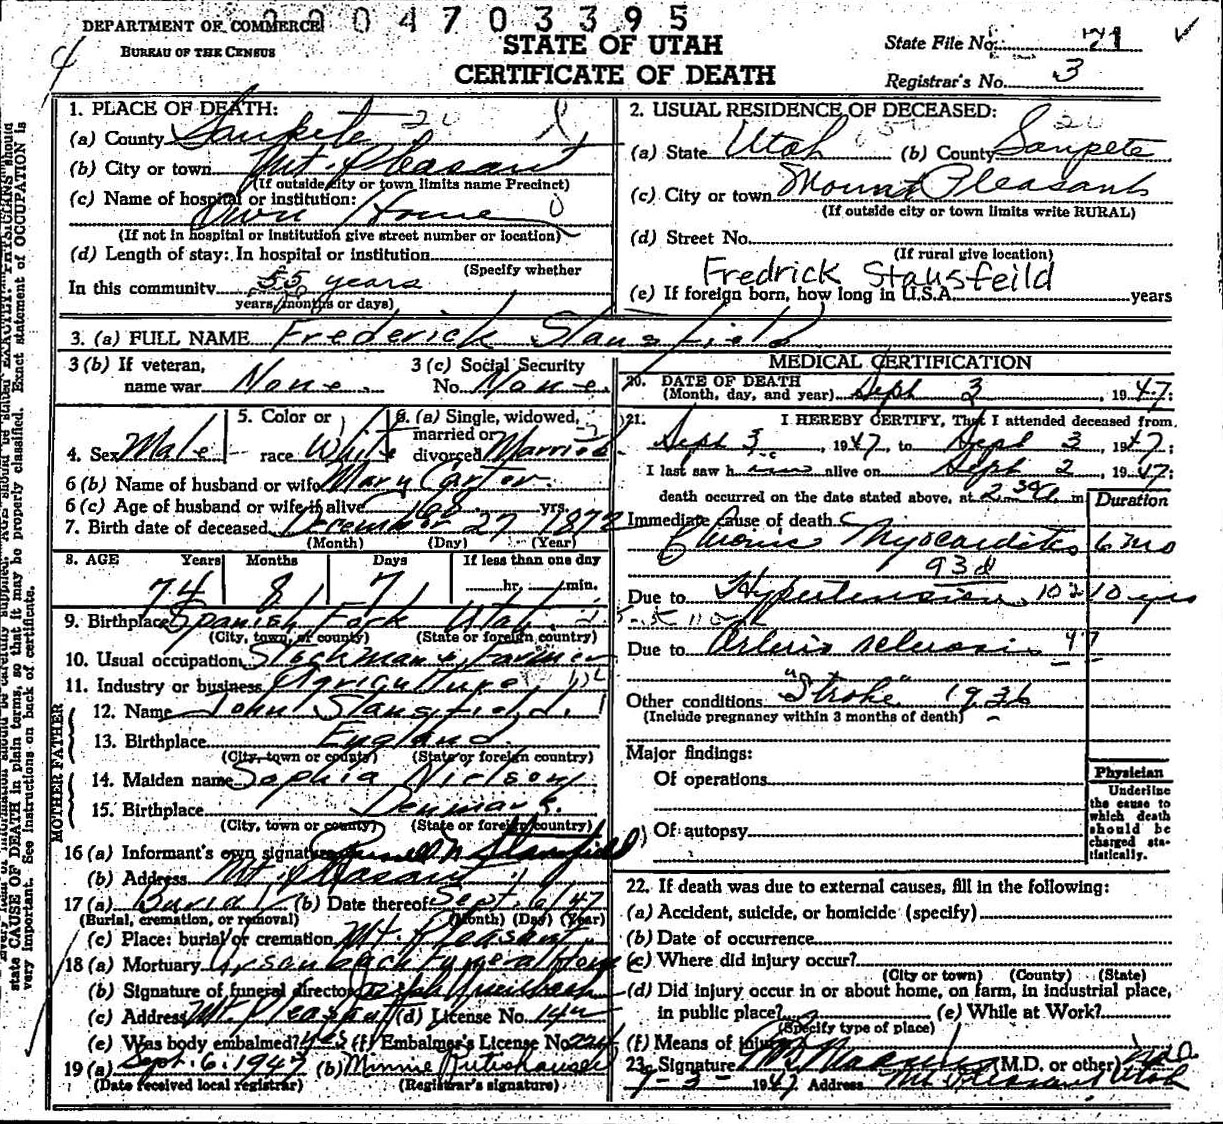 0004703395
DEPARTMENT OF COMMERCE
BUREAU OF THE CENSUS
STATE OF UTAH
CERTIFICATE OF DEATH
State File No. 71
Registrar's No. 3
1. PLACE OF DEATH:
(a) County Sanpete 20
(b) City or town Mt. Pleasant
(If outside city or town limits name Precinct)
(c) Name of hospital or institution:
Own Home
(If not in hospital or institution give street number or location)
(d) Length of stay: In hospital or institution
(Specify whether
In this community 55 years
years, months or days)
2. USUAL RESIDENCE OF DECEASED:
(a) State Utah (b) County Sanpete
(c) City or town Mount Pleasant
(If outside city or town limits write RURAL)
(d) Street No.
(If rural give location)
Fredrick Stausfeild
(e) If foreign born, how long in U.S.A. years
3. (a) FULL NAME Frederick Stansfield
3 (b) If veteran, name war None.
3 (c) Social Security No. None.
4. Sex Male
5. Color or race White
6. (a) Single, widowed, married or divorced Married
6 (b) Name of husband or wife Mary Carter.
6 (c) Age of husband or wife if alive 68 yrs.
7. Birth date of deceased December 27 1872
(Month) (Day) (Year)
8. AGE Years Months Days If less than one day
74 8 7 hr. min.
9. Birthplace Spanish Fork Utah
(City, town, or county) (State or foreign country)
10. Usual occupation Stockman & Farmer
11. Industry or business Agriculture
MOTHER FATHER
12. Name John Stansfield.
13. Birthplace England.
(City, town or county) (State or foreign country)
14. Maiden name Sophia Nielson
15. Birthplace Denmark.
(City, town or county) (State or foreign country)
16 (a) Informant's own signature Stansfield
(b) Address Mt. Pleasant
17 (a) Burial (b) Date thereof Sept. 6/47
(Burial, cremation, or removal) (Month) (Day) (Year)
(c) Place: burial or cremation Mt. Pleasant
18 (a) Mortuary Ursenbach Funeral Home
(b) Signature of funeral director
(c) Address Mt. Pleasant (d) License No.
(e) Was body embalmed? yes (f) Embalmer's License No.
19 (a) Sept. 6. 1947 (b) Minnie Rutishauser
(Date received local registrar) (Registrar's signature)
MEDICAL CERTIFICATION
20. DATE OF DEATH
(Month, day, and year) Sept 3, 1947:
21. I HEREBY CERTIFY, That I attended deceased from
Sept 3, 1947, to Sept 3, 1947;
I last saw him alive on Sept 2, 1947;
death occurred on the date stated above, at m
Duration
Immediate cause of death
Chronic Myocarditis 6 mo
93d
Due to Hypertension 102 10 yrs
Due to Arterio sclerosis
Other conditions "Stroke" 1936
(Include pregnancy within 3 months of death)
Major findings:
Of operations
Of autopsy
Physician
Underline the cause to which death should be charged statistically.
22. If death was due to external causes, fill in the following:
(a) Accident, suicide, or homicide (specify)
(b) Date of occurrence
(c) Where did injury occur?
(City or town) (County) (State)
(d) Did injury occur in or about home, on farm, in industrial place,
in public place? (e) While at Work?
(Specify type of place)
(f) Means of injury
23. Signature (M.D. or other) M.D.
9-3-1947 Address Mt. Pleasant Utah
state CAUSE OF DEATH in plain terms, so that it may be properly classified. Exact statement of OCCUPATION is
very important. See instructions on back of certificate.